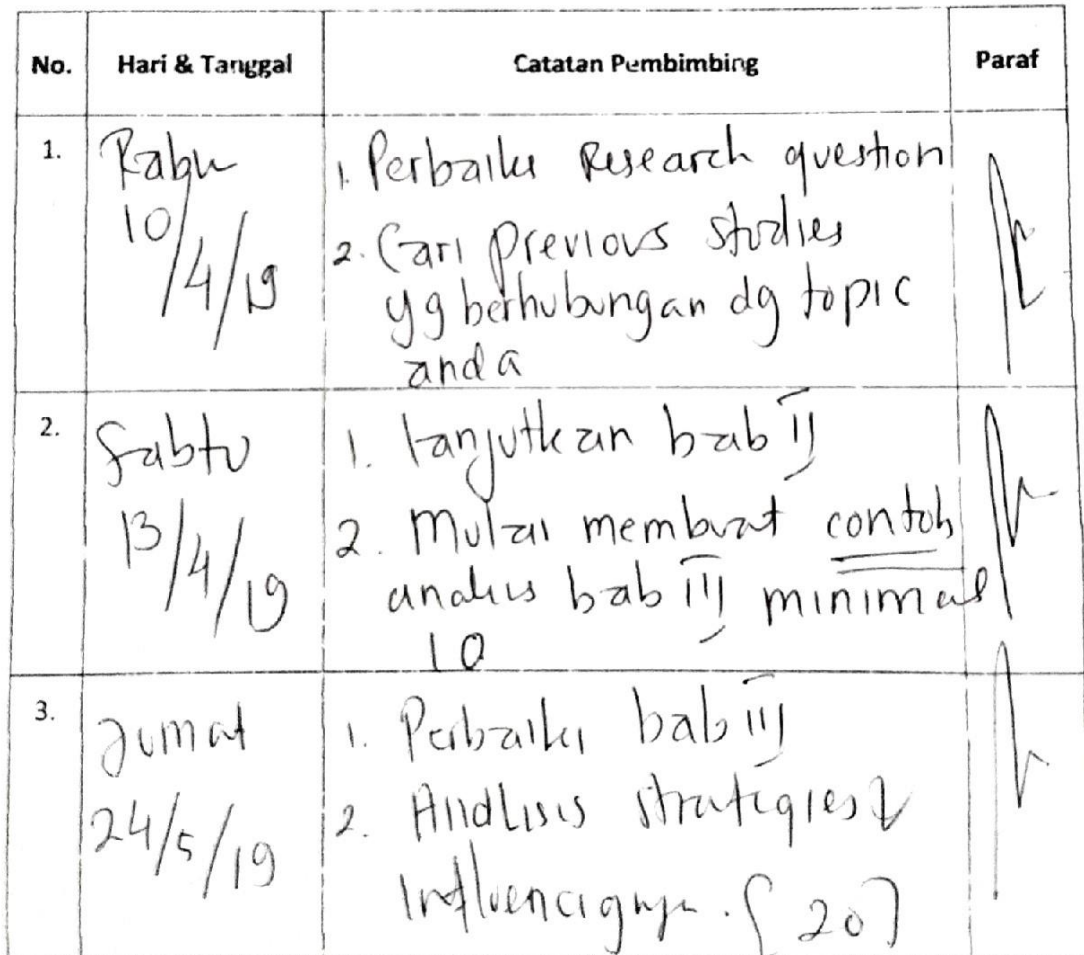 No. Hari & Tanggal Catatan Pembimbing Paraf
1. Rabu 1. Perbaiki Research question
10/4/19 2. Cari previous studies
yg berhubungan dg topic
anda
2. Sabtu 1. lanjutkan bab II
13/4/19 2. Mulai membuat contoh
analisis bab III minimal
10
3. Jumat 1. Perbaiki bab III
24/5/19 2. Analisis strategies &
[20]